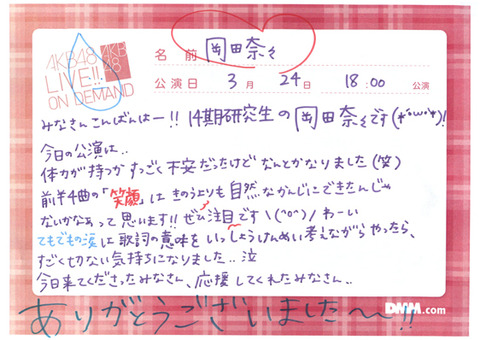 AKB48
LIVE!!
ON DEMAND
AKB
48
名前 岡田奈々
公演日 3月24日 18:00 公演
みなさんこんばんはー!! 14期研究生の岡田奈々です(*'ω'*)!
今日の公演は..
体力が持つかすっごく不安だったけどなんとかなりました(笑)
前半4曲の「笑顔」はきのうよりも自然なかんじにできたんじゃ
ないかなぁって思います!! ぜひ注目です\(^o^)/わーい
てもでもの涙は歌詞の意味をいっしょうけんめい考えながらやったら、
すごく切ない気持ちになりました..泣
今日来てくださったみなさん、応援してくれたみなさん..
ありがとうございました〜!!
DMM.com